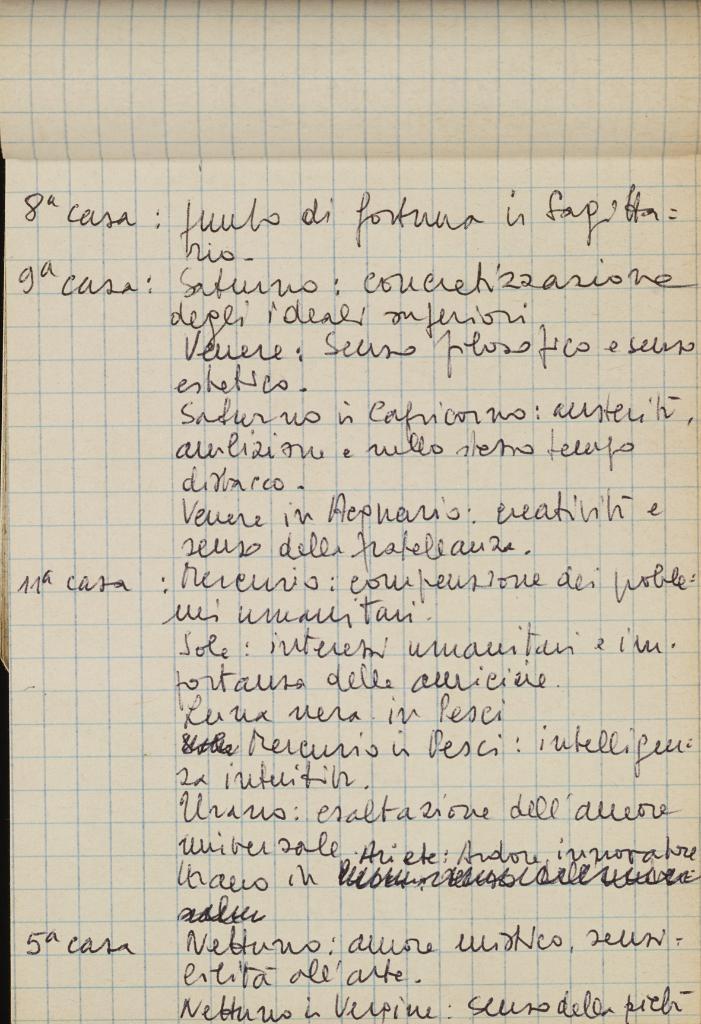 8ª casa : punto di fortuna in Sagitta=
rio.
9ª casa : Saturno : concretizzazione
degli ideali superiori
Venere : Senso filosofico e senso
estetico.
Saturno in Capricorno : austerità,
ambizione e nello stesso tempo
distacco.
Venere in Acquario : creatività e
senso della fratellanza.
11ª casa : Mercurio : comprensione dei proble=
mi umanitari.
Sole : interessi umanitari e im-
portanza delle amicizie.
Luna nera in Pesci
Mercurio in Pesci : intelligen=
za intuitiva.
Urano : esaltazione dell'amore
universale
Urano in Ariete : Ardore innovatore
5ª casa Nettuno : amore mistico, sensi=
bilità all'arte.
Nettuno in Vergine : senso della pietà